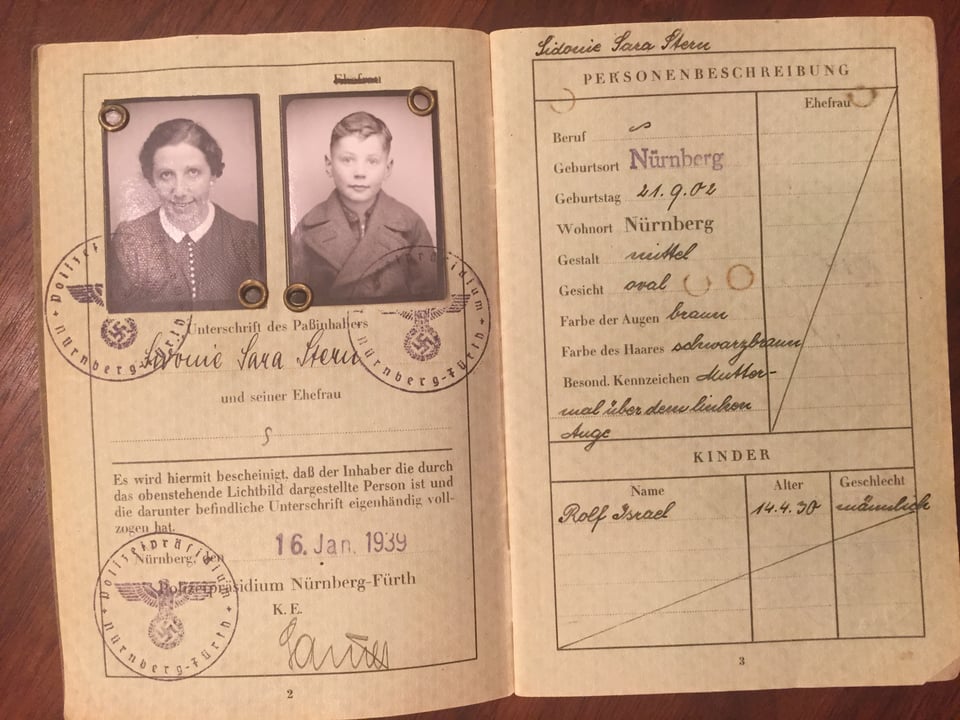 Ehefrau
Polizeipräsidium
Nürnberg-Fürth
Polizeipräsidium
Nürnberg-Fürth
Unterschrift des Paßinhabers
Sidonie Sara Stern
und seiner Ehefrau
Es wird hiermit bescheinigt, daß der Inhaber die durch
das obenstehende Lichtbild dargestellte Person ist und
die darunter befindliche Unterschrift eigenhändig voll-
zogen hat.
Nürnberg, den 16. Jan. 1939
Polizeipräsidium Nürnberg-Fürth
K. E.
Polizeipräsidium
Nürnberg-Fürth
2
Sidonie Sara Stern
PERSONENBESCHREIBUNG
Ehefrau
Beruf
Geburtsort Nürnberg
Geburtstag 21.9.02
Wohnort Nürnberg
Gestalt mittel
Gesicht oval
Farbe der Augen braun
Farbe des Haares schwarzbraun
Besond. Kennzeichen Mutter-
mal über dem linken
Auge
KINDER
Name Alter Geschlecht
Rolf Israel 14.4.30 männlich
3